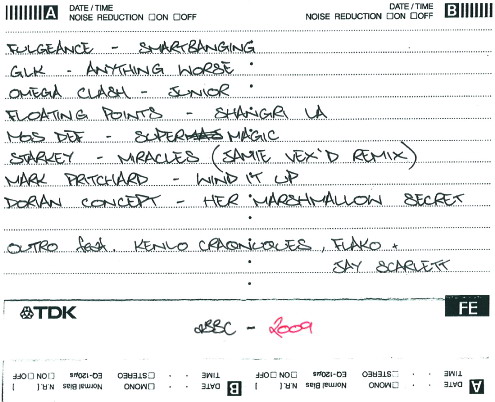 A DATE / TIME
NOISE REDUCTION ☐ON ☐OFF
DATE / TIME B
NOISE REDUCTION ☐ON ☐OFF
FULGEANCE - SMARTBANGING
GLK - ANYTHING WORSE
OMEGA CLASH - JUNIOR
FLOATING POINTS - SHANGRI LA
MOS DEF - SUPER MAGIC
STARKEY - MIRACLES (JAMIE VEX'D REMIX)
MARK PRITCHARD - WIND IT UP
DORIAN CONCEPT - HER MARSHMALLOW SECRET
OUTRO feat. KENLO CRAQNUQUES, FLAKO +
JAY SCARLETT
TDK FE
2BBC - 2009
A DATE TIME
[ ] N.R. [ ] Normal Bias EQ-120µs
☐MONO ☐STEREO ☐ON ☐OFF
B DATE TIME
[ ] N.R. [ ] Normal Bias EQ-120µs
☐MONO ☐STEREO ☐ON ☐OFF